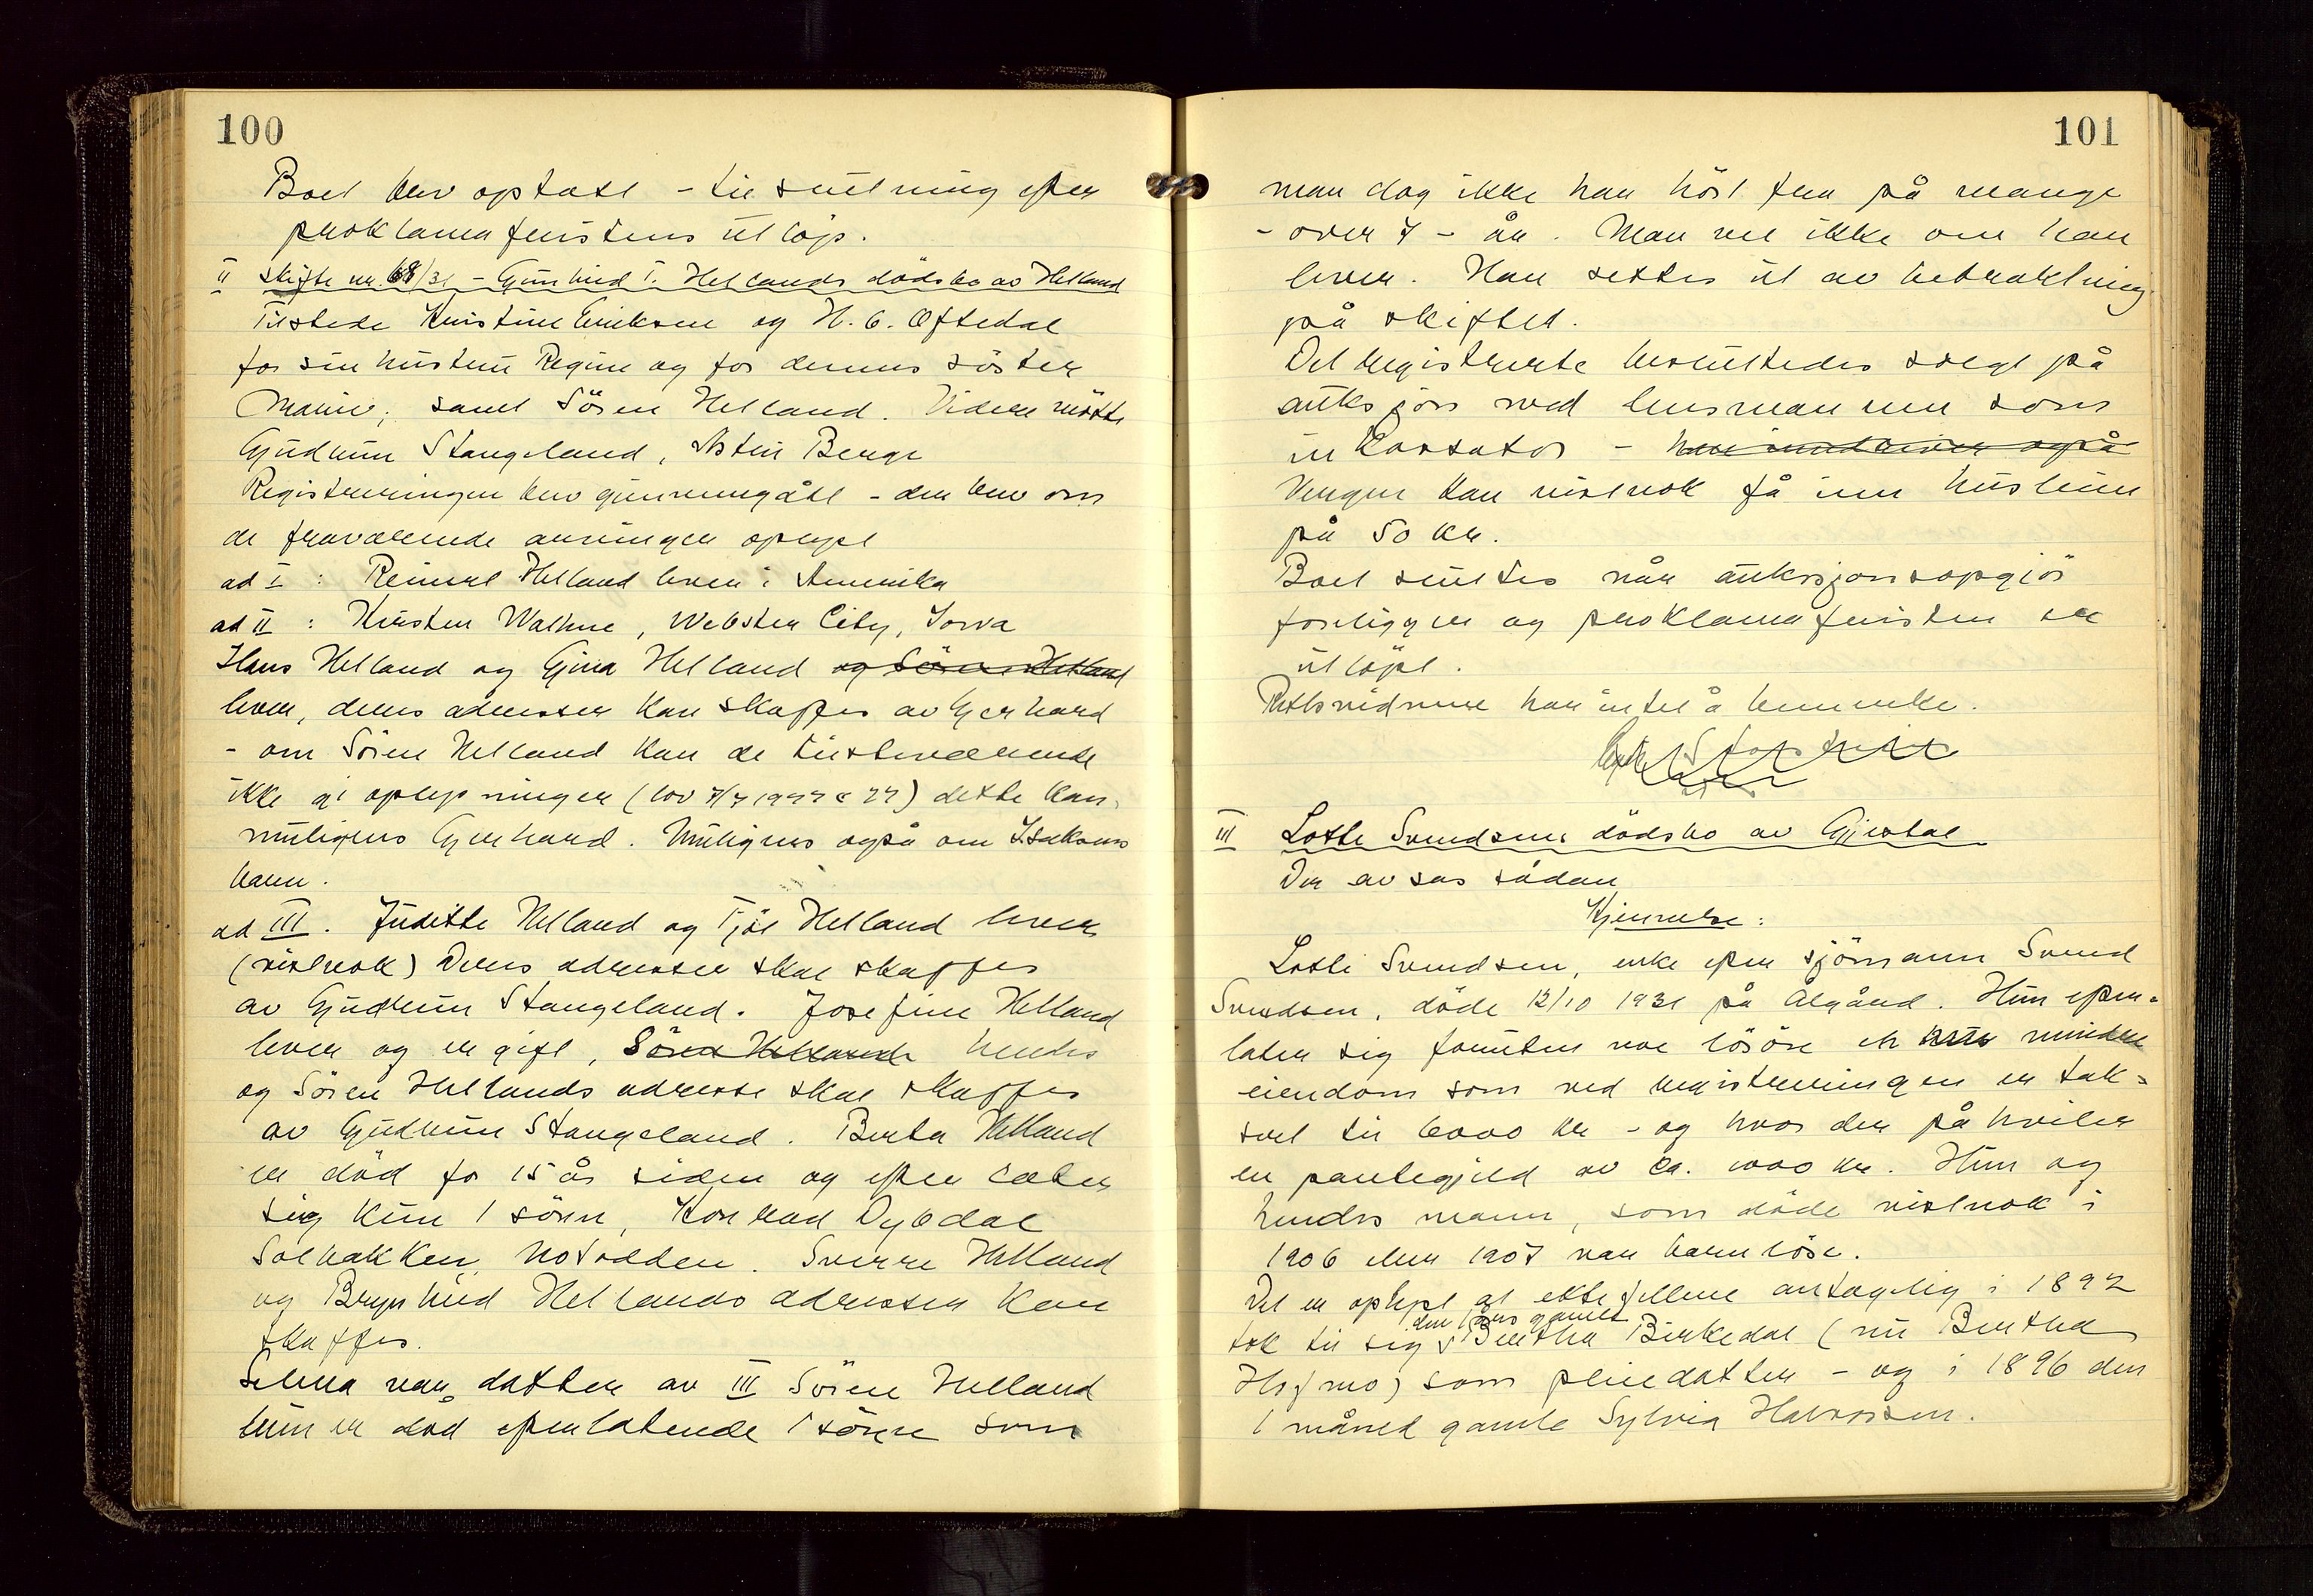 100
Boet blev optatt - til slutning efter
proklamafristens utløp.
II Skifte nr. 68/31 - Gunhild T. Hellands dødsbo av Helland
Tilstede Kristine Eriksen og H. C. Oftedal
for sin hustru Regine og for dennes søster
Marie, samt Sören Helland. Videre møtte
Gudrun Stangeland, Berge
Registreringen blev gjennemgått - den blev om
de fraværende arvinger oplyst
ad I : Helland lever i Amerika
ad II : Kirsten Walhne, Webster City, Iowa
Hans Helland og Gina Helland og Sören Helland
lever, deres adresser kan skaffes av Gerhard
- om Sören Helland kan de tilstedeværende
ikke gi oplysninger (lov ) dette kan
muligens Gerhard. Muligens også om Isaksens
barn.
ad III. Judithe Helland og Tjöl Helland lever
(vistnok) Deres adresser skal skaffes
av Gudrun Stangeland. Josefine Helland
lever og er gift, Sören Hellands hendes
og Sören Hellands adresse skal skaffes
av Gudrun Stangeland. Berta Helland
er död for 15 år siden og efterlater
sig kun 1 sönn, Konrad Dybdal
Solbakken, Notodden. Sverre Helland
og Brynhild Hellands adresser kan
skaffes.
Selma var datter av III Sören Helland
hun er död efterlatende 1 sönn som
101
man dog ikke har hört fra på mange
- over 7 - år. Man vet ikke om han
lever. Han settes ut av betraktning
på skiftet.
Det registrerte besluttedes solgt på
auksjon ved lensmannen som
inkassator - han inndriver også
Verger kan vistnok få inn husleien
på 50 kr.
Boet sluttes når auksjonsopgjör
foreligger og proklamafristen er
utlöpt.
Rettsvidnene har intet å bemerke.
III Lotte Svendsens dödsbo av Gjestal
Der avsas sådan
Kjennelse:
Lotte Svendsen, enke efter sjömann Svend
Svendsen, döde 12/10 1931 på Ålgård. Hun efter-
later sig foruten noe lösöre en hus mindre
eiendom som ved registreringen er tak-
sert til 6000 kr - og hvor der på hviler
en pantegjeld av ca. 1000 kr. Hun og
hendes mann, som döde vistnok i
1906 eller 1907 var barnlöse.
Det er oplyst at ektefellene antagelig i 1892
den 1 års gamle
tok til sig v Bertha Birkedal (nu Bertha
Hofmo) som pleiedatter - og i 1896 den
1 måned gamle Sylvia Halvorsen.